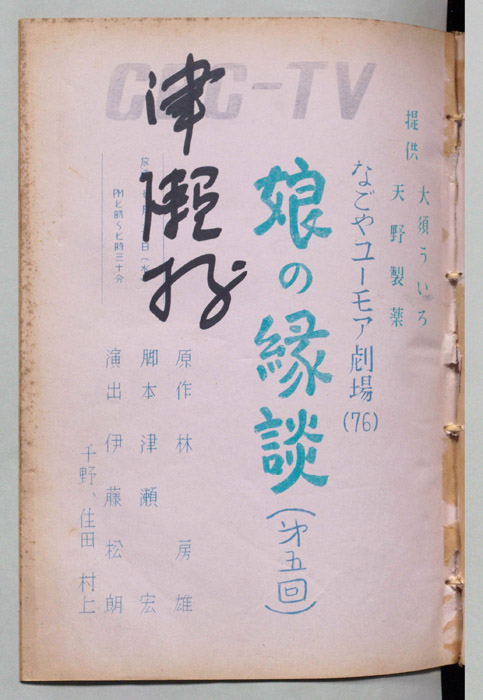 CBC-TV
提供 大須ういろ
天野製薬
なごやユーモア劇場(76)
娘の縁談(才五回)
PM七時〜七時三十分
原作 林 房雄
脚本 津瀬 宏
演出 伊藤松朗
千野、住田 村上
津瀬